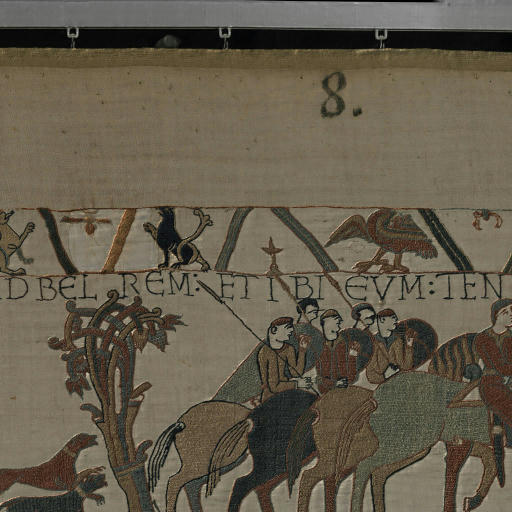 8.
D BEL REM: ET IBI EVM: TEN